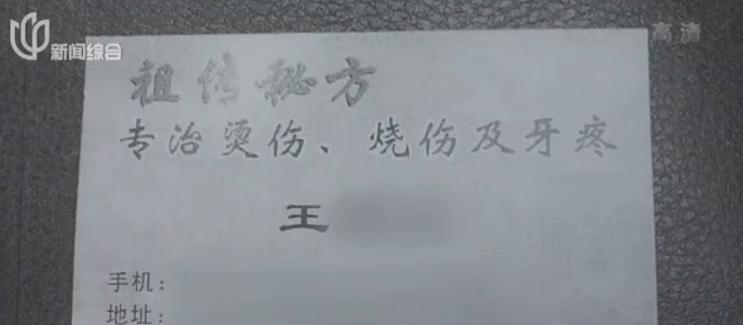 新闻综合
高清
祖传秘方
专治烫伤、烧伤及牙疼
王
手机：
地址：